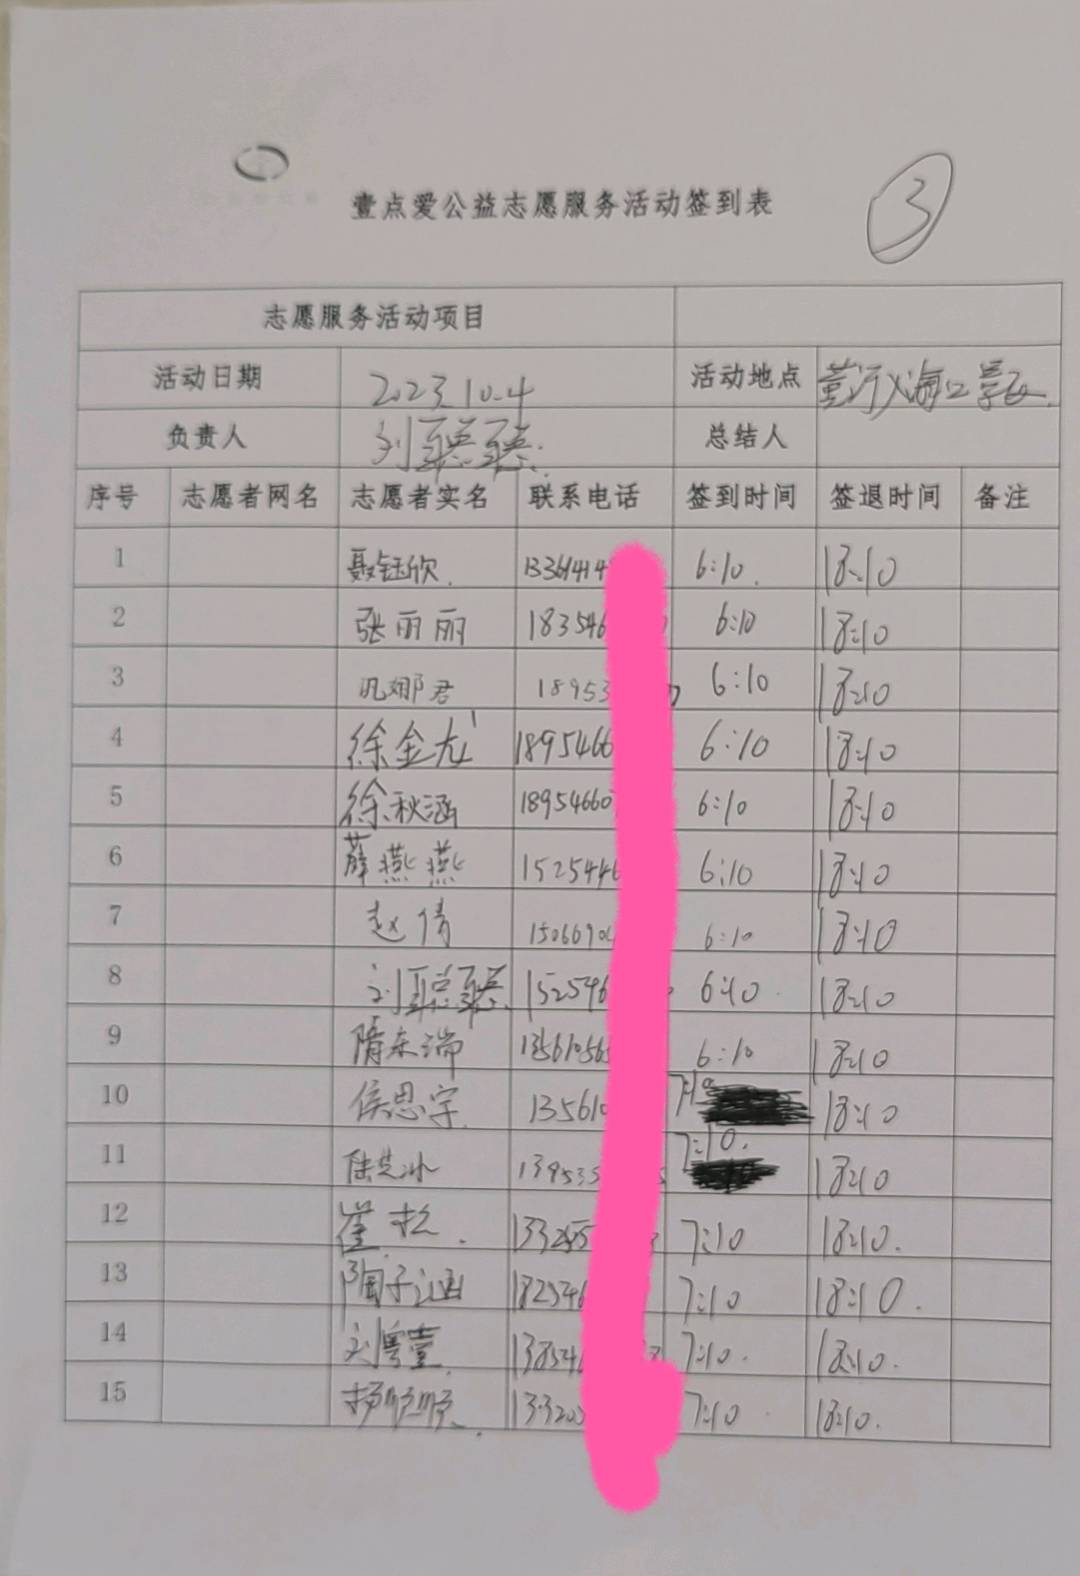 壹点爱公益志愿服务活动签到表
3
志愿服务活动项目
活动日期 2023.10.4 活动地点
负责人 刘聪聪 总结人
序号 志愿者网名 志愿者实名 联系电话 签到时间 签退时间 备注
1 聂钰欣 1336414 6:10 18:10
2 张丽丽 183546 6:10 18:10
3 巩娜君 18953 6:10 18:10
4 徐金龙 1895466 6:10 18:10
5 徐秋涵 18954660 6:10 18:10
6 薛燕燕 1525446 6:10 18:10
7 赵倩 1506690 6:10 18:10
8 刘聪聪 152546 6:10 18:10
9 隋东瑞 13561056 6:10 18:10
10 侯思宇 13561 7:10 18:10
11 陆芝冰 139535 7:10 18:10
12 崔松 7:10 18:10
13 陶子涵 182546 7:10 18:10
14 刘粤萱 138546 7:10 18:10
15 杨顺顺 13320 7:10 18:10